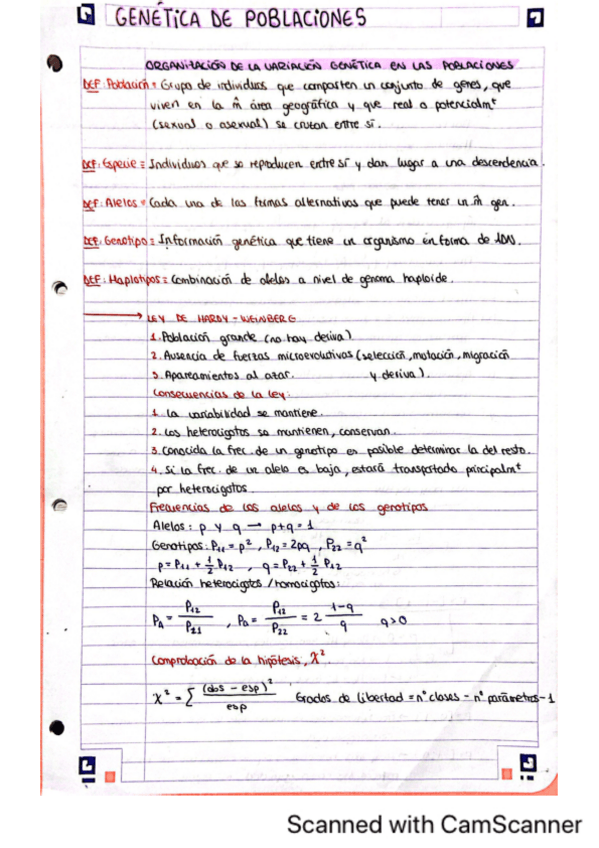 GENÉTICA DE POBLACIONES
ORGANIZACIÓN DE LA VARIACIÓN GENÉTICA EN LAS POBLACIONES
DEF: Población = Grupo de individuos que comparten un conjunto de genes, que
viven en la m̂ área geográfica y que real o potencialmᵗ
(sexual o asexual) se cruzan entre sí.
DEF: Especie = Individuos que se reproducen entre sí y dan lugar a una descendencia.
DEF: Alelos = Cada una de las formas alternativas que puede tener un m̂ gen.
DEF: Genotipo = Información genética que tiene un organismo en forma de ADN.
DEF: Haplotipos = Combinación de alelos a nivel de genoma haploide.
→ LEY DE HARDY-WEINBERG
1. Población grande (no hay deriva)
2. Ausencia de fuerzas microevolutivas (selección, mutación, migración
3. Apareamientos al azar. y deriva).
Consecuencias de la Ley:
1. La variabilidad se mantiene.
2. Los heterocigotos se mantienen, conservan.
3. Conocida la frec. de un genotipo es posible determinar la del resto.
4. Si la frec. de un alelo es baja, estará transportado principalmᵗ
por heterocigotos.
Frecuencias de los alelos y de los genotipos
Alelos: p y q → p+q=1
Genotipos: P₁₁ = p², P₁₂ = 2pq, P₂₂ = q²
p = P₁₁ + 1/2 P₁₂, q = P₂₂ + 1/2 P₁₂
Relación heterocigotos / homocigotos:
P_A = P₁₂/P₂₁, P_a = P₁₂/P₂₂ = 2 (1-q)/q q>0
Comprobación de la hipótesis, χ².
χ² = Σ (obs - esp)²/esp Grados de libertad = nº clases - nº parámetros - 1
Scanned with CamScanner